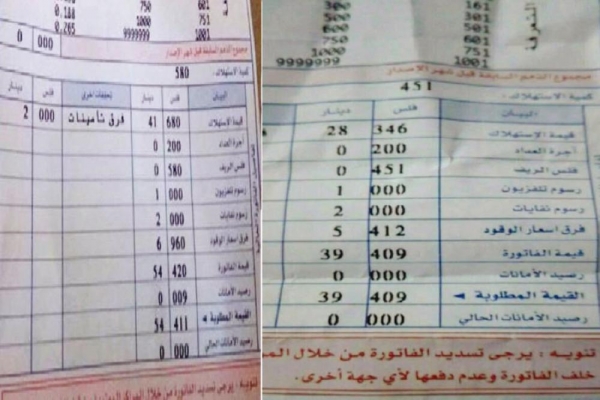 301 161
500 301
600 501
750 601
1000 751
9999999 1001
التعرفة
مجموع الدعم السابقة قبل شهر الاصدار
كمية الاستهلاك : 451
البيـــان فلس دينار
قيمة الاستهلاك 346 28
أجرة العداد 200 0
فلس الريف 451 0
رسوم تلفزيون 000 1
رسوم نفايات 000 2
فرق اسعار الوقود 412 5
قيمة الفاتورة 409 39
رصيد الأمانات 000 0
القيمة المطلوبة 409 39
رصيد الأمانات الحالي 000 0
تنويه : يرجى تسديد الفاتورة من خلال
خلف الفاتورة وعدم دفعها لأي جهة أخرى.
0,188 750 601
0,265 1000 751
9999999 1001
مجموع الدعم السابقة قبل شهر الإصدار 000 0
كمية الاستهلاك : 580
البيـــان فلس دينار تحققات اخرى فلس دينار
قيمة الاستهلاك 680 41 فرق تأمينات 000 2
أجرة العداد 200 0
فلس الريف 580 0
رسوم تلفزيون 000 1
رسوم نفايات 000 2
فرق اسعار الوقود 960 6
قيمة الفاتورة 420 54
رصيد الأمانات 009 0
القيمة المطلوبة 411 54
رصيد الأمانات الحالي 000 0
تنويه : يرجى تسديد الفاتورة من خلال